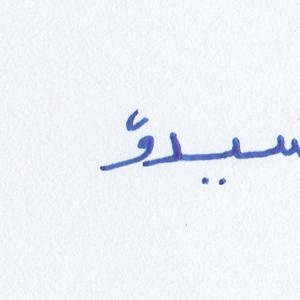 سيدوّ